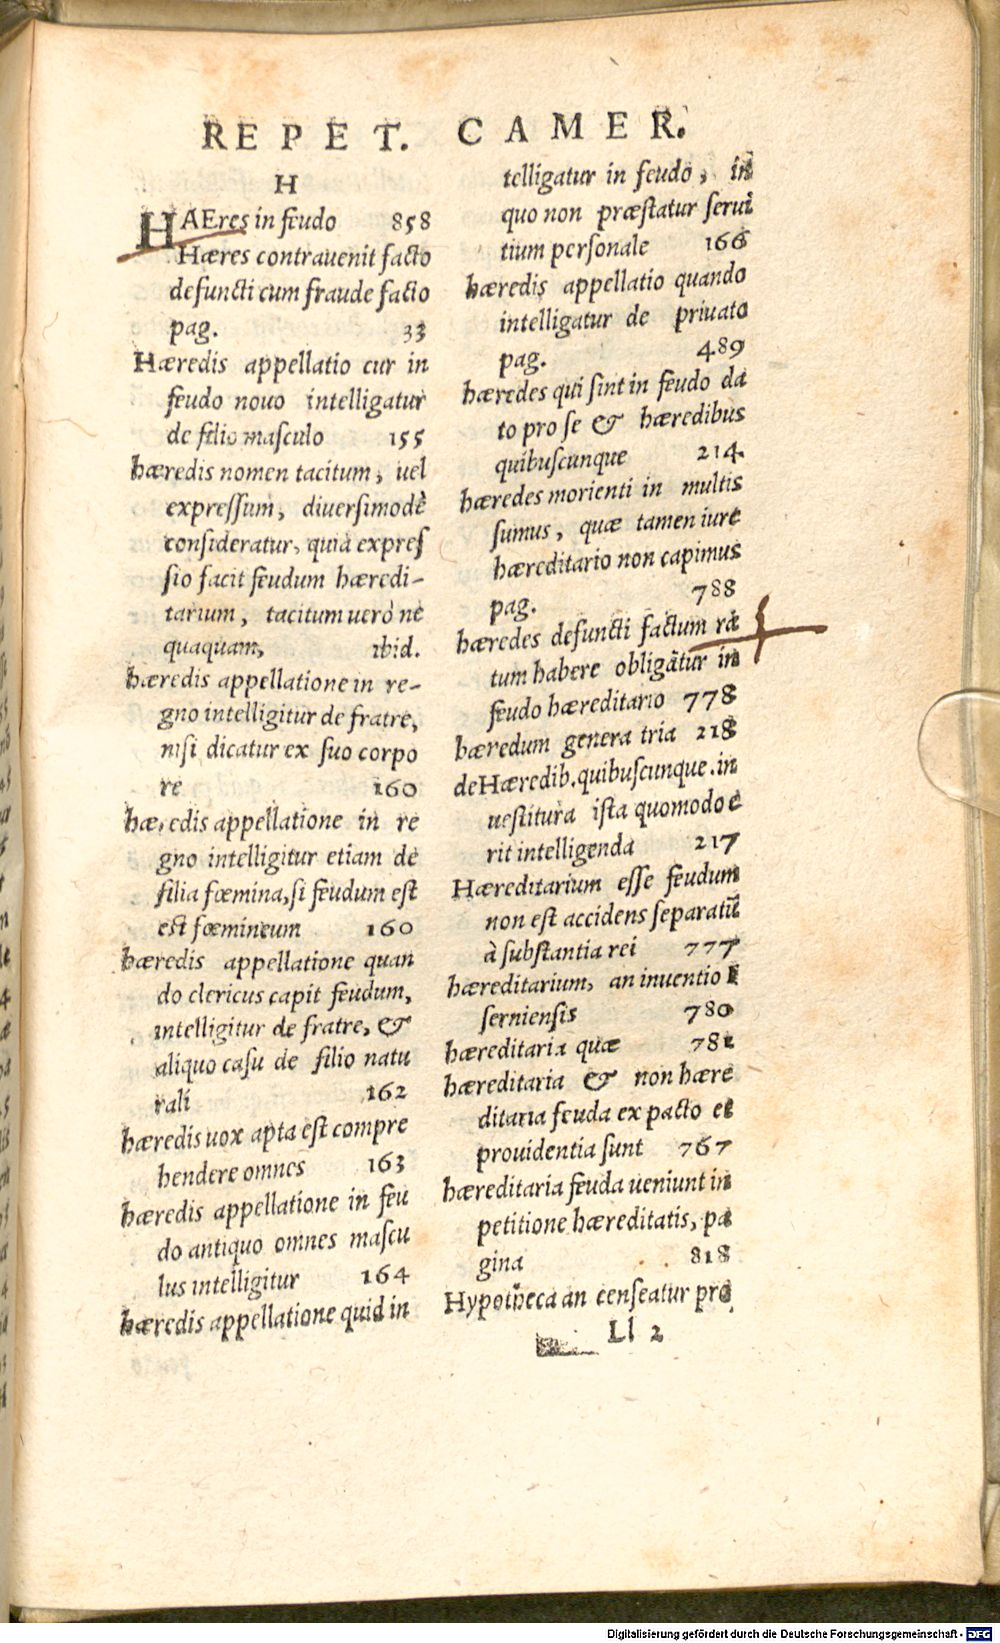 REPET. CAMER.
H
HAEres in feudo 858
Hæres contrauenit facto
defuncti cum fraude facto
pag. 33
Hæredis appellatio cur in
feudo nouo intelligatur
de filio masculo 155
hæredis nomen tacitum, uel
expressum, diuersimodè
consideratur, quia expres
sio facit feudum hæredi-
tarium, tacitum uerò ne
quaquam, ibid.
hæredis appellatione in re-
gno intelligitur de fratre,
nisi dicatur ex suo corpo
re 160
hæredis appellatione in re
gno intelligitur etiam de
filia fœmina, si feudum est
est fœmineum 160
hæredis appellatione quan
do clericus capit feudum,
intelligitur de fratre, &
aliquo casu de filio natu
rali 162
hæredis uox apta est compre
hendere omnes 163
hæredis appellatione in feu
do antiquo omnes mascu
lus intelligitur 164
hæredis appellatione quid in
telligatur in feudo, in
quo non præstatur serui
tium personale 166
hæredis appellatio quando
intelligatur de priuato
pag. 489
hæredes qui sint in feudo da
to pro se & hæredibus
quibuscunque 214
hæredes morienti in multis
sumus, quæ tamen iure
hæreditario non capimus
pag. 788
hæredes defuncti factum ra
tum habere obligātur in
feudo hæreditario 778
hæredum genera tria 218
de Hæredib. quibuscunque. in
uestitura ista quomodo e
rit intelligenda 217
Hæreditarium esse feudum
non est accidens separatū
à substantia rei 777
hæreditarium, an inuentio I
serniensis 780
hæreditaria quæ 781
hæreditaria & non hære
ditaria feuda ex pacto et
prouidentia sunt 767
hæreditaria feuda ueniunt in
petitione hæreditatis, pa
gina 818
Hypotheca an censeatur pro
Ll 2
Digitalisierung gefördert durch die Deutsche Forschungsgemeinschaft - DFG